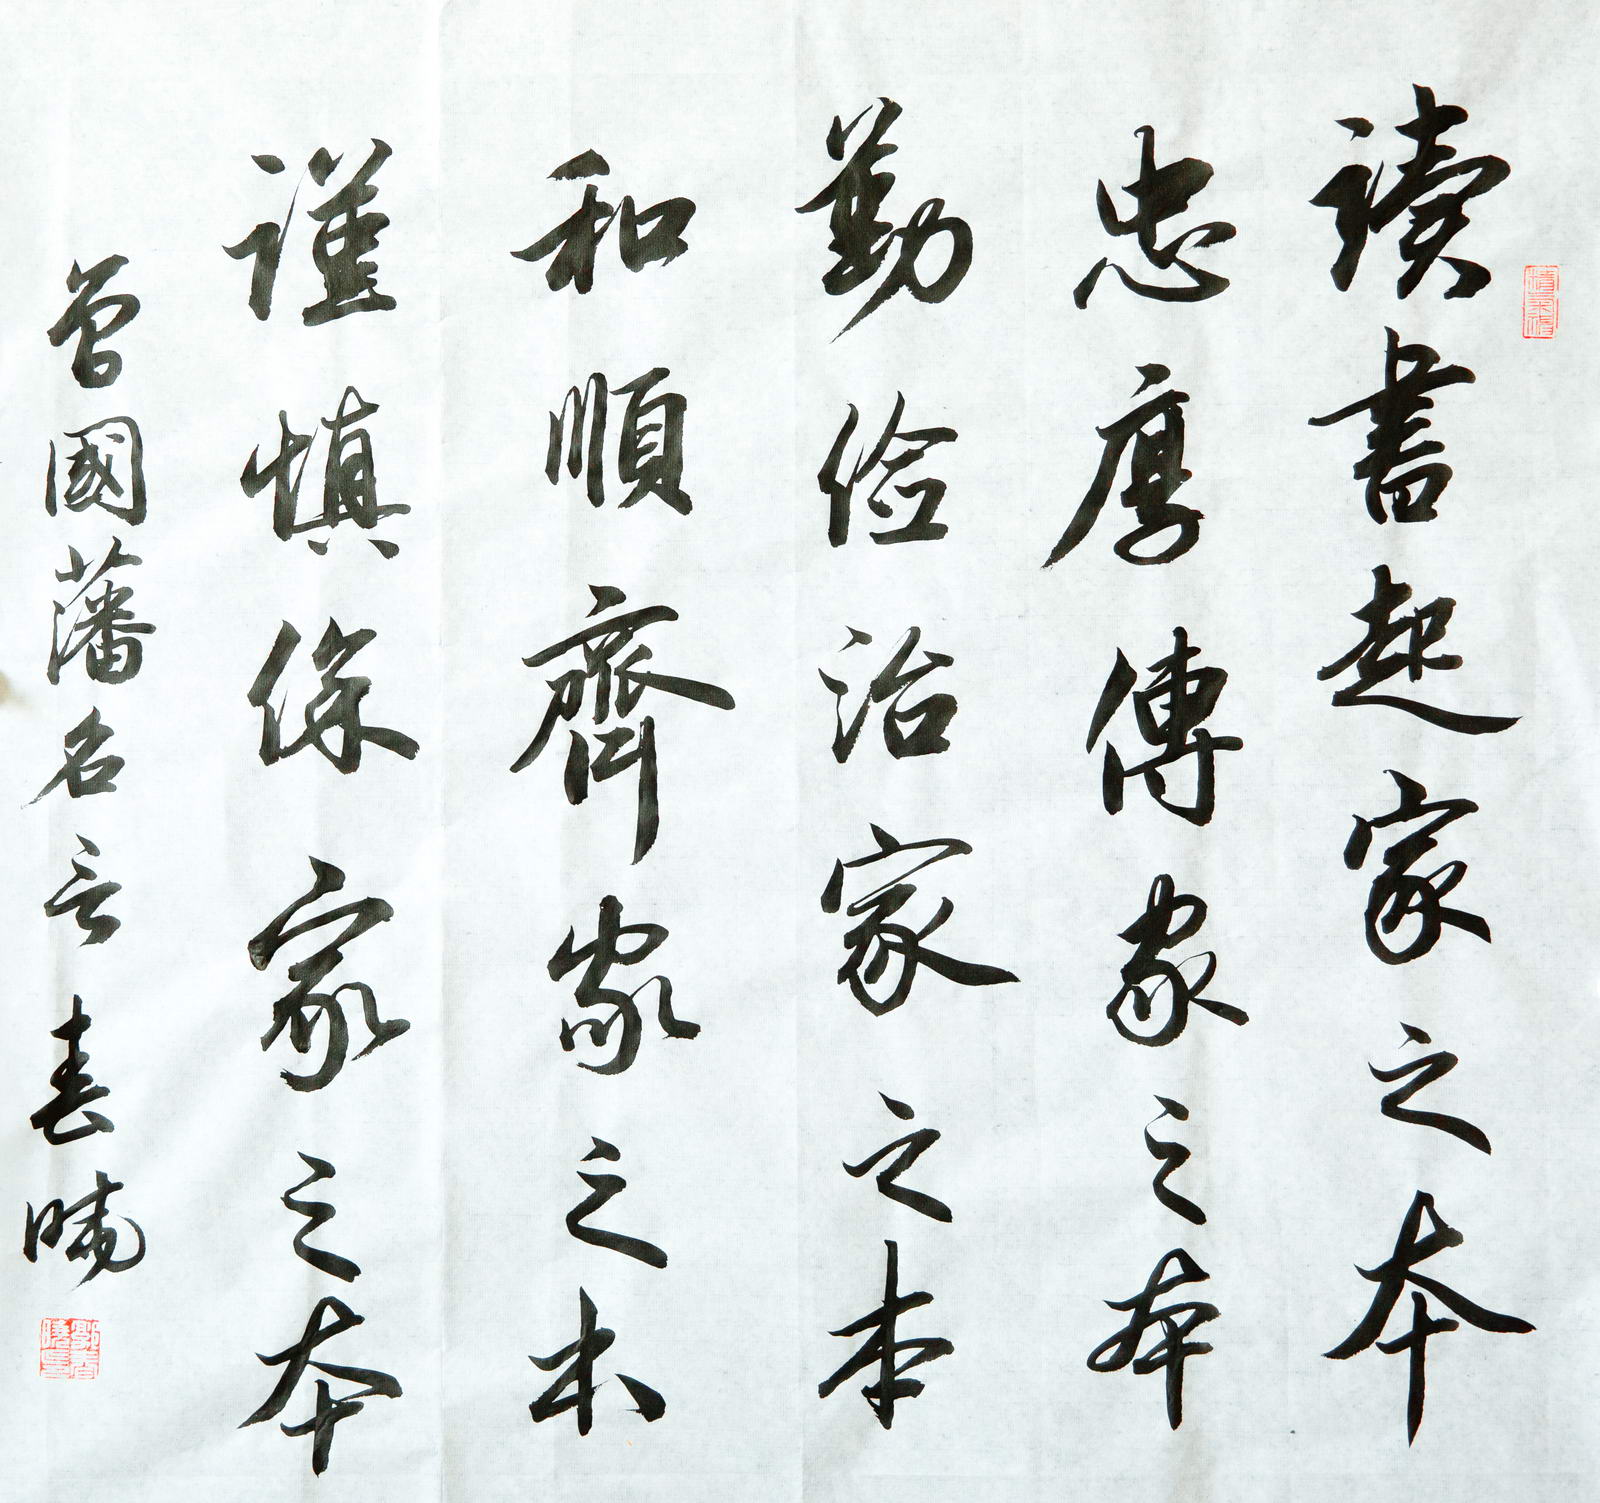 讀書起家之本
忠厚傳家之本
勤儉治家之本
和順齊家之本
謹慎保家之本
曾國藩名言 春曉